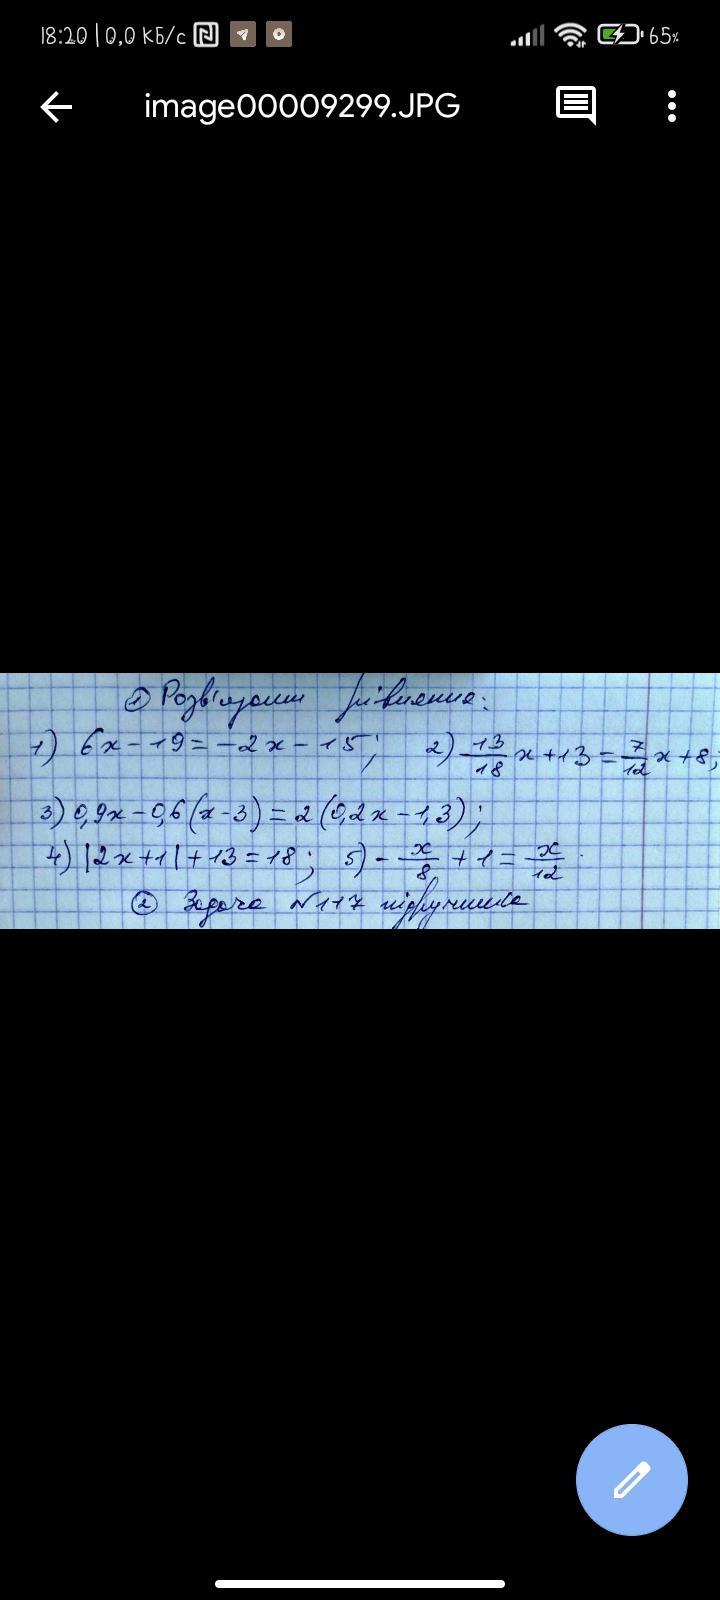 18:20 | 0,0 КБ/с 65%
image00009299.JPG
① Розв'язати рівняння:
1) 6x - 19 = -2x - 15; 2) 13/18 x + 13 = 7/12 x + 8;
3) 0,9x - 0,6(x - 3) = 2(0,2x - 1,3);
4) |2x + 1| + 13 = 18; 5) - x/8 + 1 = x/12.
② Задача №117 підручника